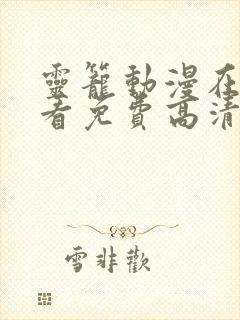 靈籠動漫在
看免費高清
雪非歡